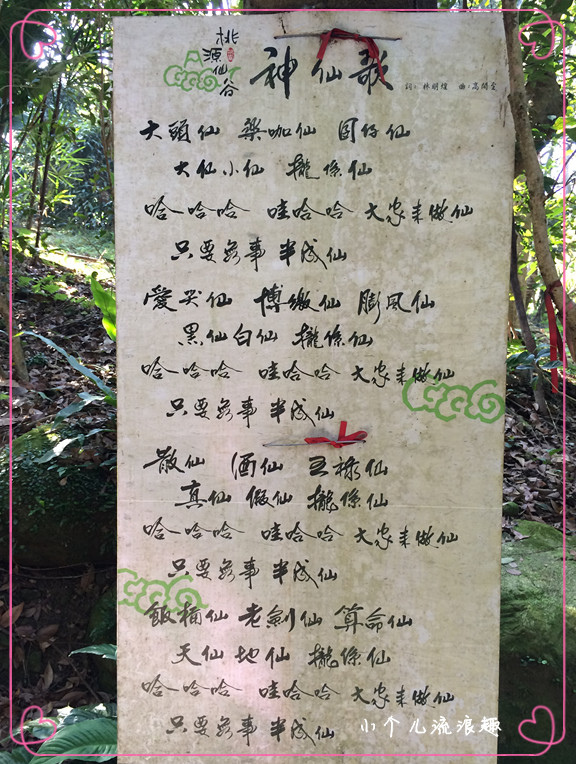 桃源仙谷
神仙歌
詞：林明煌 曲：高閑雲
大頭仙 樂咖仙 囡仔仙
大仙小仙 攏係仙
哈哈哈 哇哈哈 大家來做仙
只要無事 半成仙
愛哭仙 博繳仙 膨風仙
黑仙白仙 攏係仙
哈哈哈 哇哈哈 大家來做仙
只要無事 半成仙
散仙 酒仙 王祿仙
真仙 假仙 攏係仙
哈哈哈 哇哈哈 大家來做仙
只要無事 半成仙
飯桶仙 老劍仙 算命仙
天仙地仙 攏係仙
哈哈哈 哇哈哈 大家來做仙
只要無事 半成仙
小个儿流浪趣